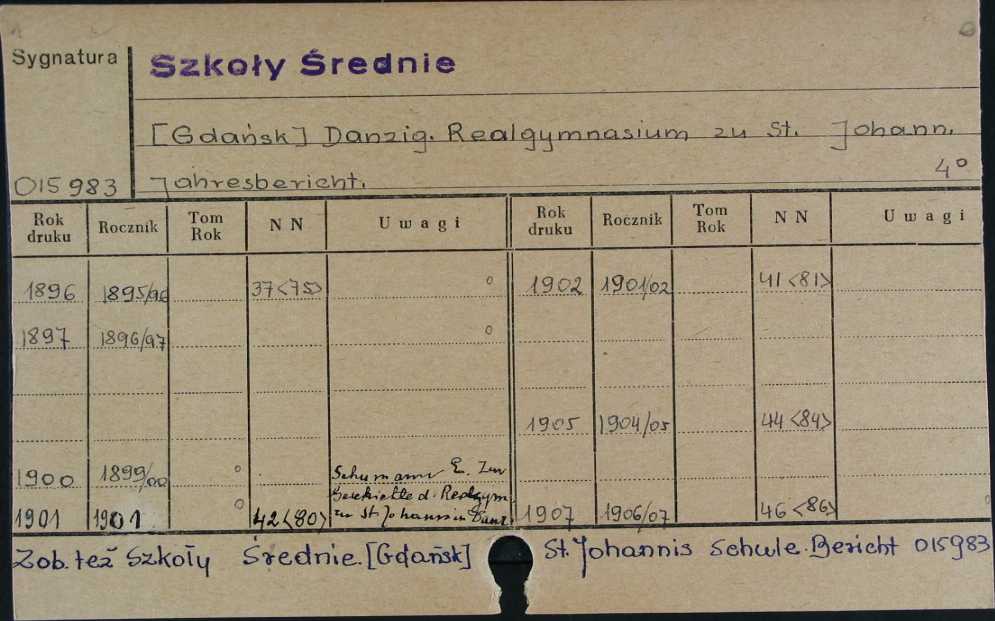 Sygnatura
Szkoły Średnie
[Gdańsk] Danzig. Realgymnasium zu St. Johann.
015983 Jahresbericht. 4°
Rok druku Rocznik Tom Rok NN Uwagi Rok druku Rocznik Tom Rok NN Uwagi
1896 1895/96 37<75> ° 1902 1901/02 41<81>
1897 1896/97 °
1905 1904/05 44<84>
1900 1899/00 ° Schumann E. Zur
Geschichte d. Realgym.
1901 1901 ° 42<80> zu St Johann in Danz. 1907 1906/07 46<86>
Zob. też Szkoły Średnie. [Gdańsk] St. Johannis Schule. Bericht 015983